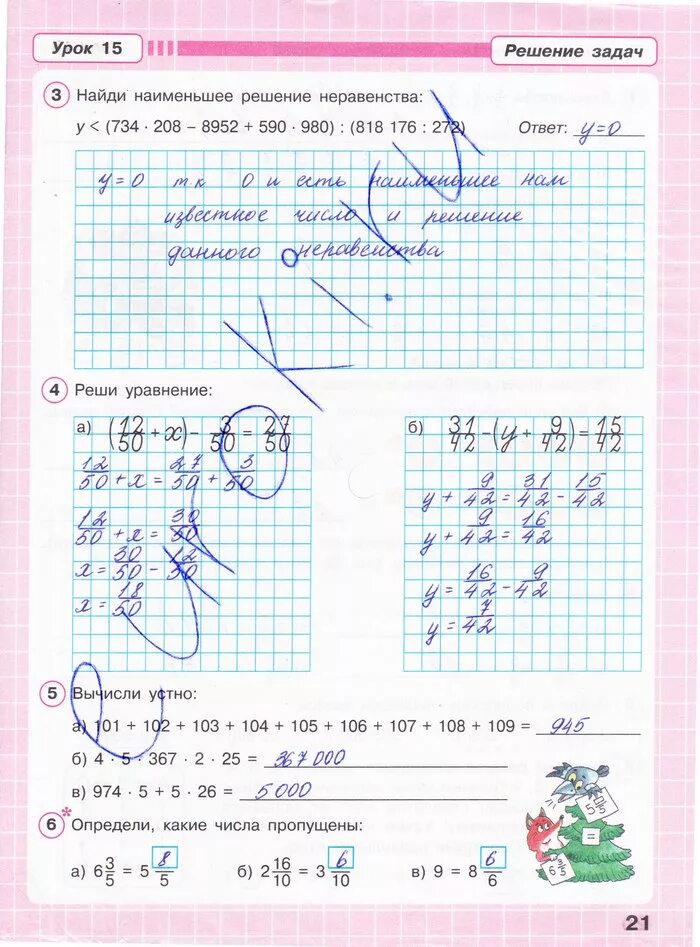 Урок 15
Решение задач
3 Найди наименьшее решение неравенства:
y < (734 · 208 – 8952 + 590 · 980) : (818 176 : 272)
Ответ: y=0
y=0 т к 0 и есть наименьшее нам
известное число и решение
данного неравенства
4 Реши уравнение:
а) (12/50 + x) – 3/50 = 27/50
12/50 + x = 27/50 + 3/50
12/50 + x = 30/50
x = 30/50 – 12/50
x = 18/50
б) 31/42 – (y + 9/42) = 15/42
y + 9/42 = 31/42 – 15/42
y + 9/42 = 16/42
y = 16/42 – 9/42
y = 7/42
5 Вычисли устно:
а) 101 + 102 + 103 + 104 + 105 + 106 + 107 + 108 + 109 = 945
б) 4 · 5 · 367 · 2 · 25 = 367000
в) 974 · 5 + 5 · 26 = 5000
6* Определи, какие числа пропущены:
а) 6 3/5 = 5 8/5 б) 2 16/10 = 3 6/10 в) 9 = 8 6/6
=
21